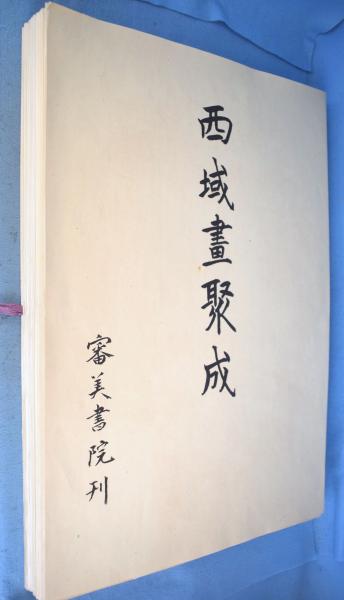 西域畫聚成
審美書院刊